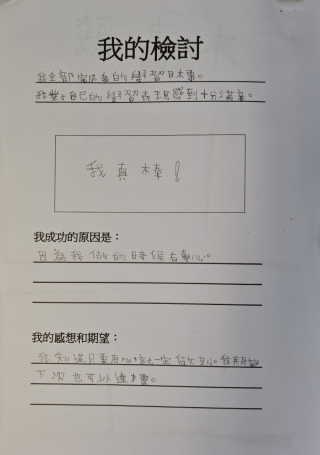 我的檢討
我全部完成我的學習目標。
我對自己的學習表現感到十分滿意。
我真棒！
我成功的原因是：
因為我做的時候有專心。
我的感想和期望：
我知道只要用心就一定做得到。我期望
下次也可以達標。